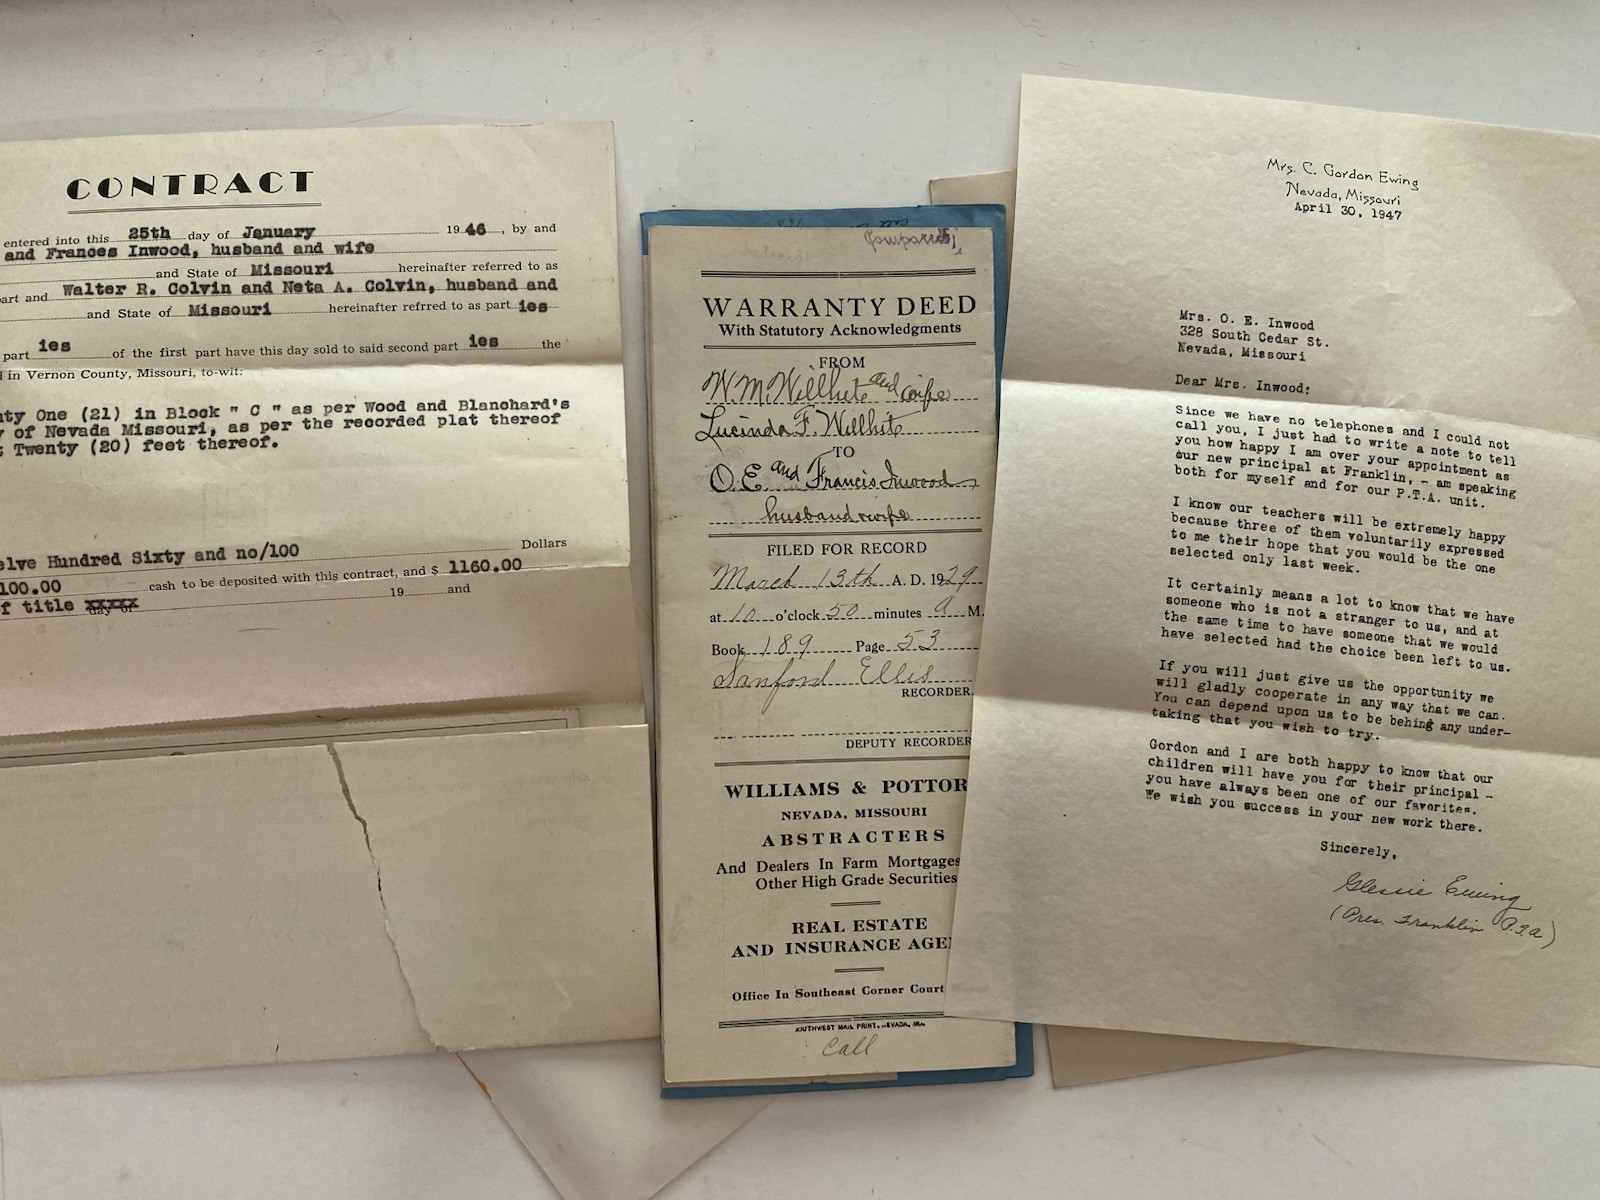 CONTRACT
entered into this 25th day of January 1946, by and
and Frances Inwood, husband and wife
and State of Missouri hereinafter referred to as
art and Walter R. Colvin and Neta A. Colvin, husband and
and State of Missouri hereinafter refrred to as part ies
part ies of the first part have this day sold to said second part ies the
in Vernon County, Missouri, to-wit:
ty One (21) in Block " C " as per Wood and Blanchard's
y of Nevada Missouri, as per the recorded plat thereof
Twenty (20) feet thereof.
elve Hundred Sixty and no/100 Dollars
100.00 cash to be deposited with this contract, and $ 1160.00
f title xxxxx day of 19 and
Compared
WARRANTY DEED
With Statutory Acknowledgments
FROM
W.M. Willhite and wife
Lucinda F. Willhite
TO
O.E. and Francis Inwood
husband wife
FILED FOR RECORD
March 13th A. D. 1929
at 10 o'clock 50 minutes A M.
Book 189 Page 53
Sanford Ellis
RECORDER.
DEPUTY RECORDER
WILLIAMS & POTTOR
NEVADA, MISSOURI
ABSTRACTERS
And Dealers In Farm Mortgages
Other High Grade Securities
REAL ESTATE
AND INSURANCE AGE
Office In Southeast Corner Court
SOUTHWEST MAIL PRINT, NEVADA, MO.
Call
Mrs. C. Gordon Ewing
Nevada, Missouri
April 30, 1947
Mrs. O. E. Inwood
328 South Cedar St.
Nevada, Missouri
Dear Mrs. Inwood:
Since we have no telephones and I could not
call you, I just had to write a note to tell
you how happy I am over your appointment as
our new principal at Franklin, - am speaking
both for myself and for our P.T.A. unit.
I know our teachers will be extremely happy
because three of them voluntarily expressed
to me their hope that you would be the one
selected only last week.
It certainly means a lot to know that we have
someone who is not a stranger to us, and at
the same time to have someone that we would
have selected had the choice been left to us.
If you will just give us the opportunity we
will gladly cooperate in any way that we can.
You can depend upon us to be behing any under-
taking that you wish to try.
Gordon and I are both happy to know that our
children will have you for their principal -
you have always been one of our favorites.
We wish you success in your new work there.
Sincerely,
Glessie Ewing
(Pres. Franklin P.T.A)